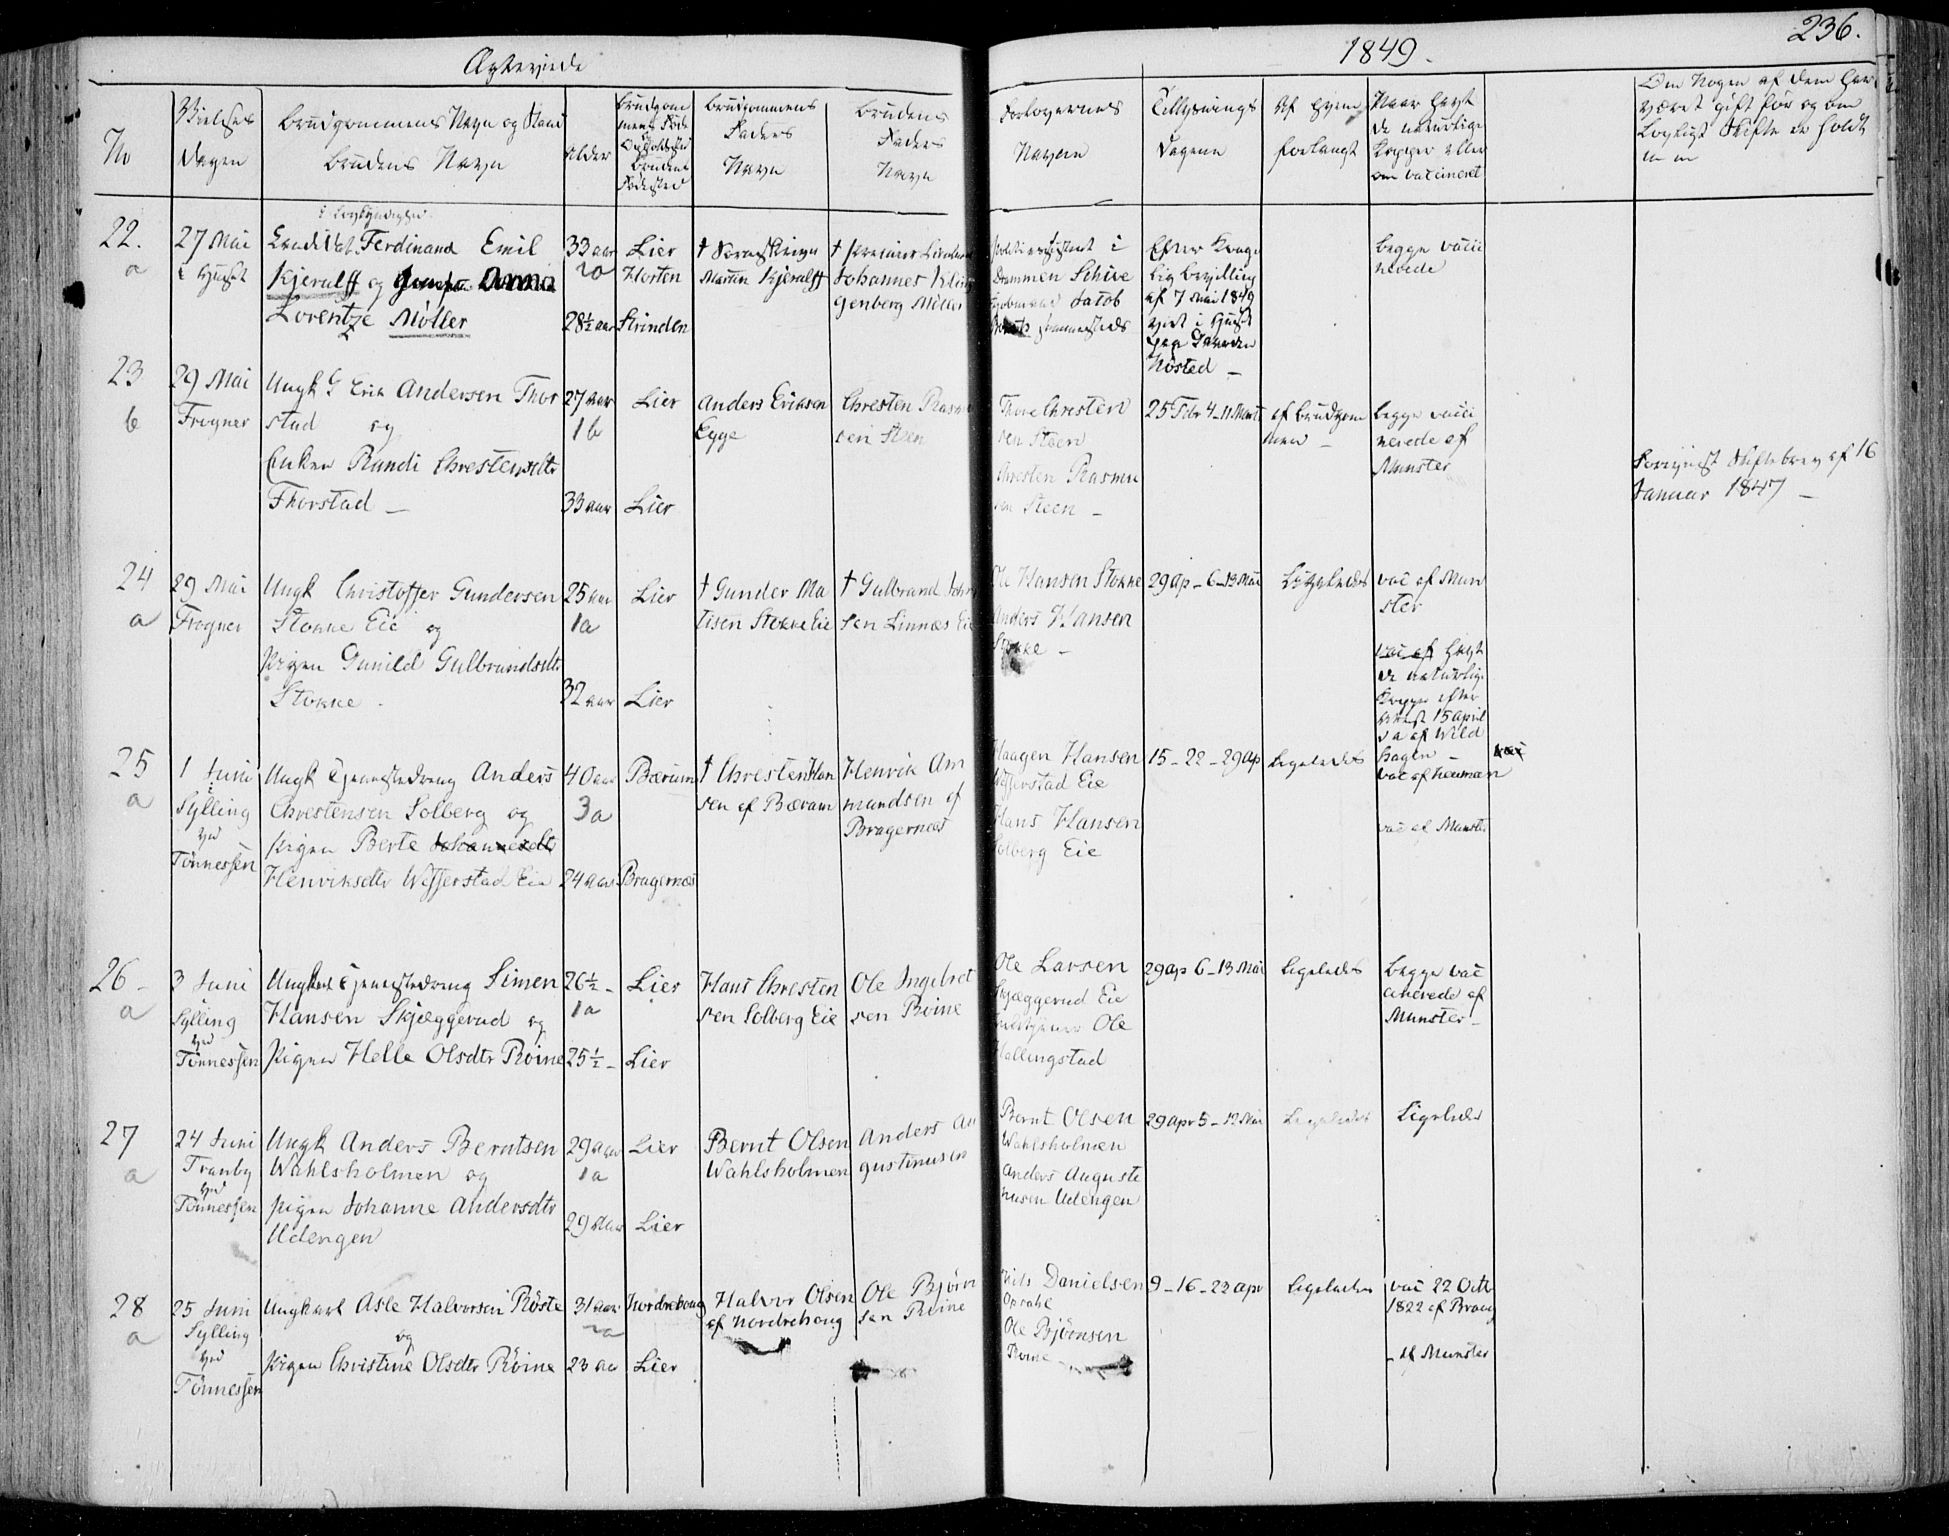 Ægteviede
1849.
236.
No
Vielses
Dagen
Brudgommens Navn og Stand
Brudens Navn
Alder
Brudgommens
Faders
Navn
Brudens
Faders
Navn
Forlovernes
Navne
Tillysnings
Dagene
Af hvem
forlangt
Naar havt
de naturlige
Kopper eller
om vaccineret
Om Nogen af dem har
været gift før og om
Lovligt Skifte er holdt
22.
a
27 Mai
i Huset
Ferdinand Emil
Kjerulff og Anna
Lorentze Møller
33 aar
28½ aar
Lier
Horten
Strinden
Morten Kjerulff
Johannes Klin
genberg Møller
Drammen Schive
Jacob
af 7 Mai 1849
viet i Huset
paa Gaarden
Nøsted –
begge vacci
nerede
23
b
29 Mai
Frogner
Ungk G Erik Andersen Thor
stad og
Enken Randi Christensdtr
Thorstad –
27 aar
1b
33 aar
Lier
Lier
Anders Eriksen
Egge
Chresten Rasmu
sen Steen
Thore Chresten
sen Steen
Chresten Rasmu
sen Steen –
25 Febr 4–11 Marts
af Brudgom
men –
begge vacci
nerede af
Munster
Foreviist Skiftebrev af 16
Januar 1847 –
24
a
29 Mai
Frogner
Ungk Christoffer Gundersen
Stokke Eie og
Pigen Gunild Gulbrandsdtr
Stokke
25 aar
1a
32 aar
Lier
Lier
† Gunder Ma
tisen Stokke Eie
† Gulbrand
sen Linnæs Eie
Ole Hansen Stokke
Anders Hansen
Stokke –
29 ap – 6–13 Mai
Ligeledes
vac af Mun
ster
vac af havt
de naturlige
Kopper efter
Attest 15 april
d a af Wild
hagen –
25
a
1 Juni
Sylling
ved
Tønnessen
Ungk Tjenestedreng Anders
Chrestensen Solberg og
Pigen Berte Johannesdtr
Henriksdtr Wefferstad Eie
40 aar
3a
24 aar
Bærum
Bragernæs
† Chresten Han
sen af Bærum
Henrik Am
mundsen af
Bragernæs
Haagen Hansen
Wefferstad Eie
Hans Hansen
Solberg Eie
15–22–29 ap
Ligeledes
vac af Neuman
vac af Munster
vac
26
a
3 Juni
Sylling
ved
Tønnessen
Ungkarl Tjenestedreng Simen
Hansen Skjæggerud og
Pigen Helle Olsdtr Røine
26½ –
1a
25½ –
Lier
Lier
Hans Chresten
sen Solberg Eie
Ole Ingebret
sen Røine
Ole Larsen
Skjæggerud Eie
Ole
Hallingstad
29 ap 6–13 Mai
Ligeledes
begge vac
cinerede af
Munster –
27
a
24 Juni
Tranby
ved
Tønnessen
Ungk Anders Berntsen
Wahlsholmen og
Pigen Johanne Andersdtr
Udengen
29 aar
1a
29 aar
Lier
Lier
Bernt Olsen
Wahlsholmen
Anders Au
gustinusen
Bernt Olsen
Wahlsholmen
Anders Auguste
nusen Udengen
29 apr 5–12 Mai
Ligeledes
Ligeledes
28
a
25 Juni
Sylling
ved
Tønnessen
Ungkarl Asle Halvorsen Røste
og
Pigen Christine Olsdtr Røine
31 aar
2a
23 aar
Nordrehoug
Lier
Halvor Olsen
af Nordrehoug
Ole Bjørn
sen Røine
Niels Danielsen
Opsahl
Ole Bjørnsen
Røine
9–16–22 apr
Ligeledes
vac 22 Octb
1822 af Brang
– af Munster